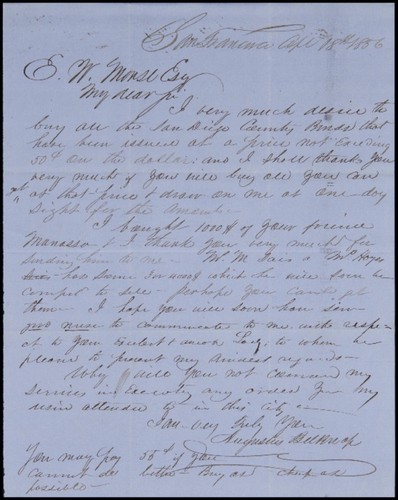 San Francisco Apl 18th 1856
E. W. Morse Esq
My dear Sir
I very much desire to
buy all the San Diego County Bonds that
have been issued at a price not exceeding
50¢ on the dollar and I shall thank you
very much if you will buy all you can
at that price & draw on me at one day
sight for the amount
I bought 1000$ of your friend
Manasse & I thank you very much for
sending him to me Mr
has some which he will soon be
compelled to sell perhaps you can get
them I hope you will soon have
good news to communicate to me with respe-
ct to your Lady to whom be
pleased to present my kindest regards
Why will you not command my
services in executing any orders you may
desire attended to in this city
I am very truly Yours
Augustus Belknap
You may pay 55¢ if you
cannot do better Buy as cheap as
possible